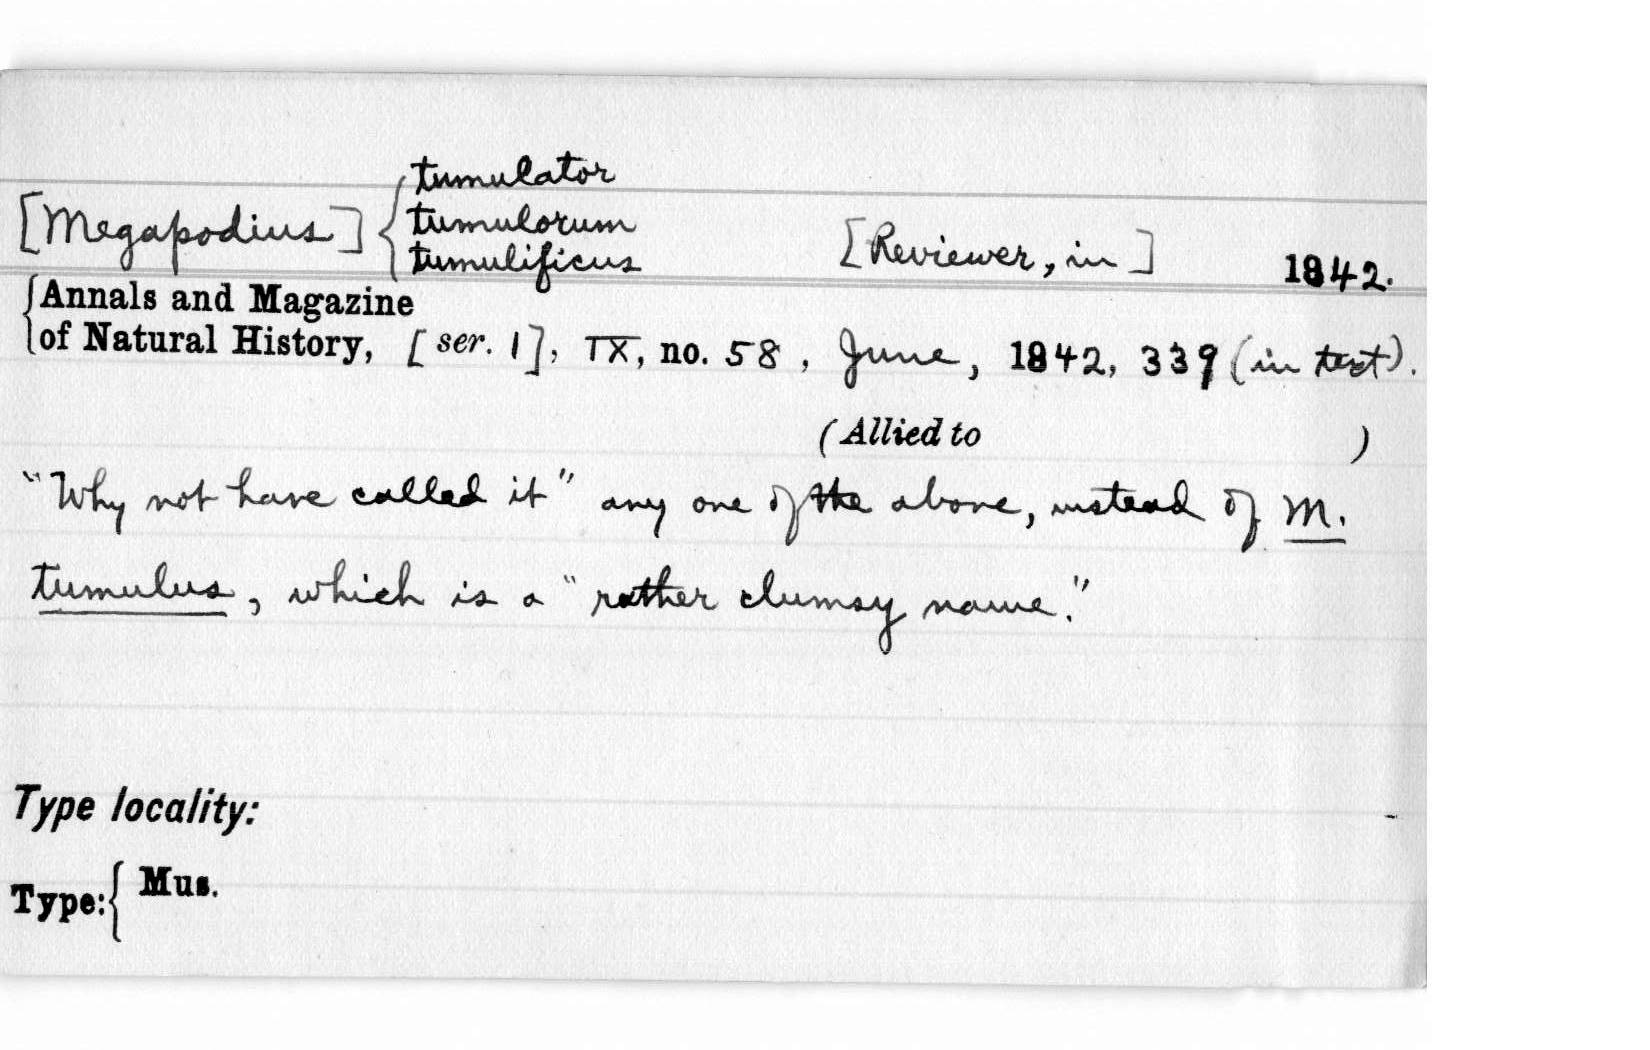 tumulator
[Megapodius] { tumulorum [Reviewer, in] 1842.
tumulificus
{ Annals and Magazine
of Natural History, [ser. 1], IX, no. 58, June, 1842, 339 (in text).
(Allied to )
"Why not have called it" any one of the above, instead of M.
tumulus, which is a "rather clumsy name."
Type locality:
Type: { Mus.